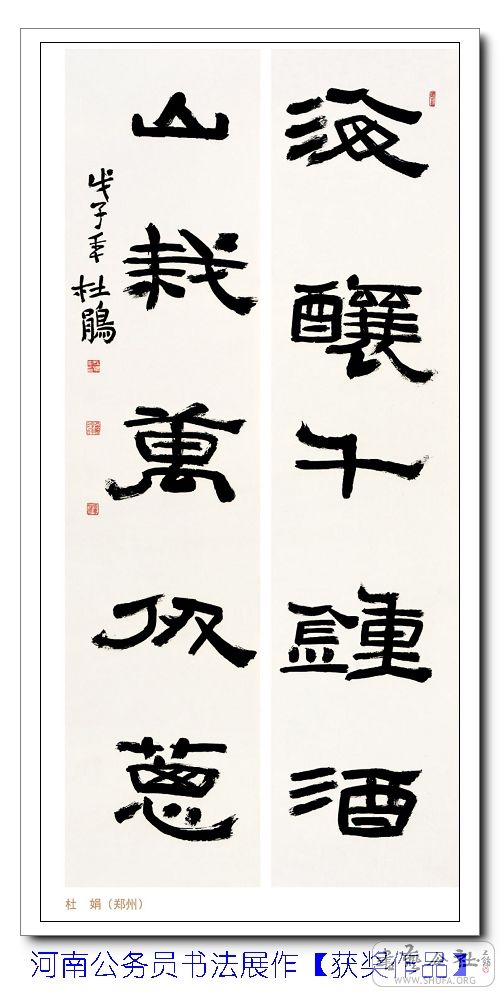 海釀千鍾酒
山栽萬仞葱
戊子年 杜鵑
杜 娟（郑州）
河南公务员书法展作【获奖作品】
书法公社
WWW.SHUFA.ORG